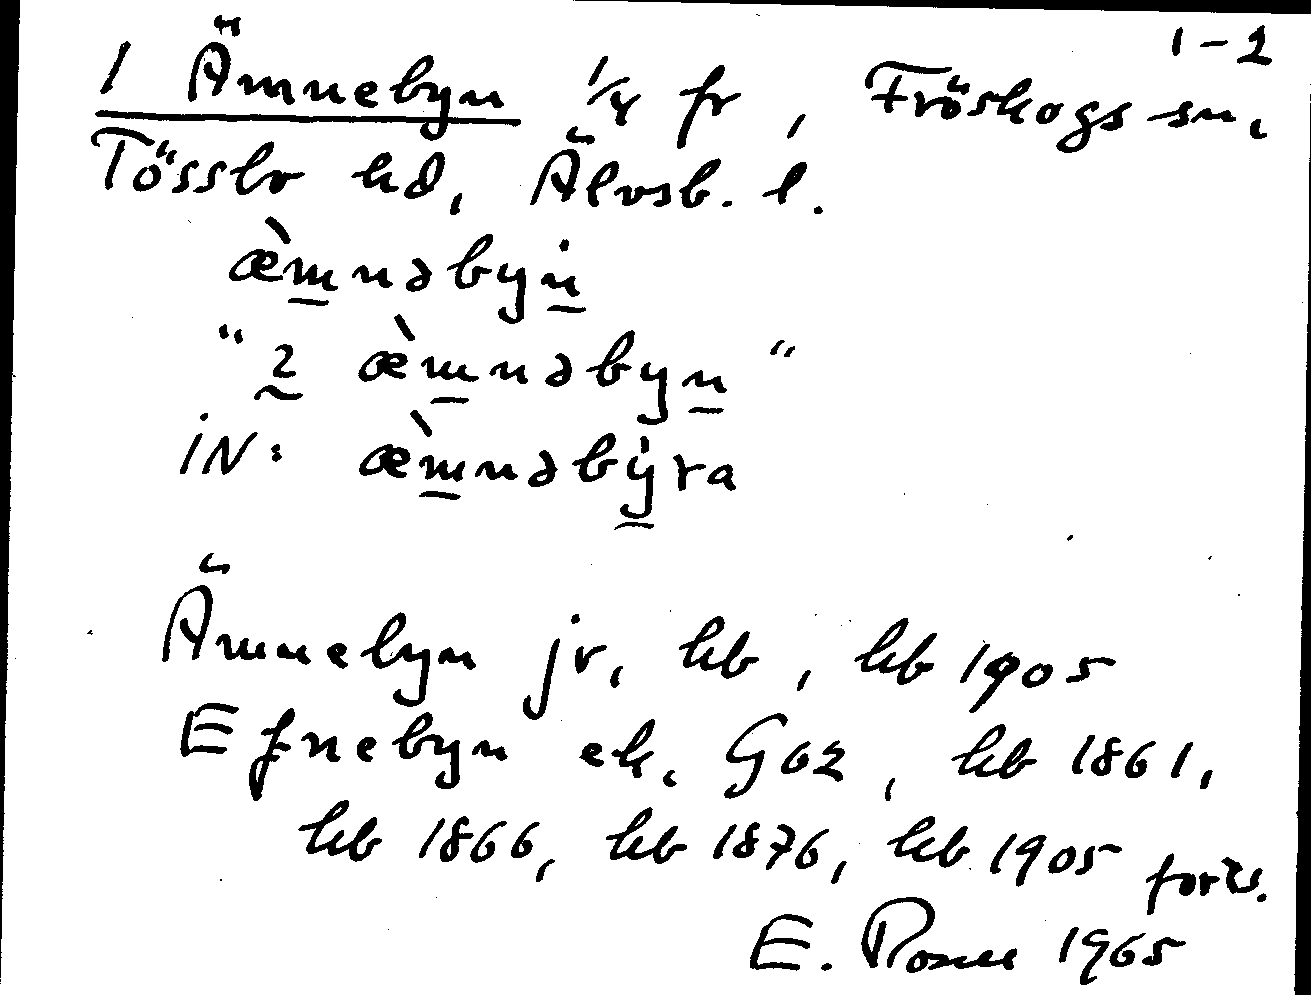 1-2
1 Ämnebyn 1/4 fr, Fröskogs sn,
Tössbo hd, Älvsb. l.
æ̀mnəbyn
"2 æ̀mnəbyn"
iN: æ̀mnəbyra
Ämnebyn jr, hb, hb 1905
Efnebyn ek. G62, hb 1861,
hb 1866, hb 1876, hb 1905 forts.
E. Rosell 1965